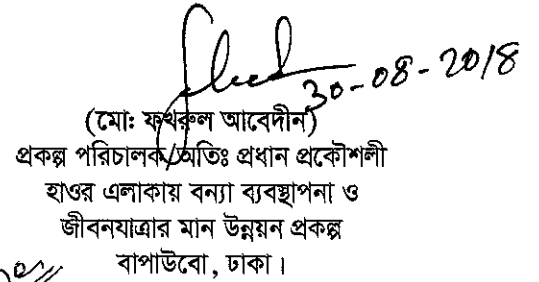 30-08-2018
(মোঃ ফখরুল আবেদীন)
প্রকল্প পরিচালক/অতিঃ প্রধান প্রকৌশলী
হাওর এলাকায় বন্যা ব্যবস্থাপনা ও
জীবনযাত্রার মান উন্নয়ন প্রকল্প
বাপাউবো, ঢাকা।